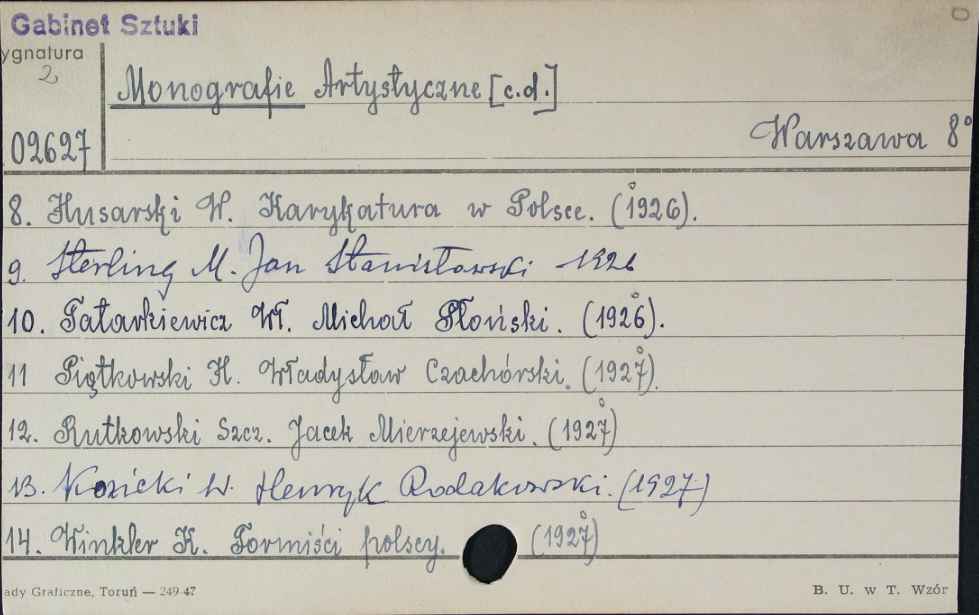 Gabinet Sztuki
ygnatura
2
Monografie Artystyczne [c.d.]
02627
Warszawa 8°
8. Husarski W. Karykatura w Polsce. (1926).
9. Sterling M. Jan Stanisławski 1926
10. Tatarkiewicz Wł. Michał Płoński. (1926).
11 Piątkowski H. Władysław Czachórski. (1927).
12. Rutkowski Szcz. Jacek Mierzejewski. (1927)
13. Kozicki W. Henryk Rodakowski. (1927)
14. Winkler K. Formiści polscy. (1927)
ady Graficzne, Toruń — 249-47
B. U. w T. Wzór